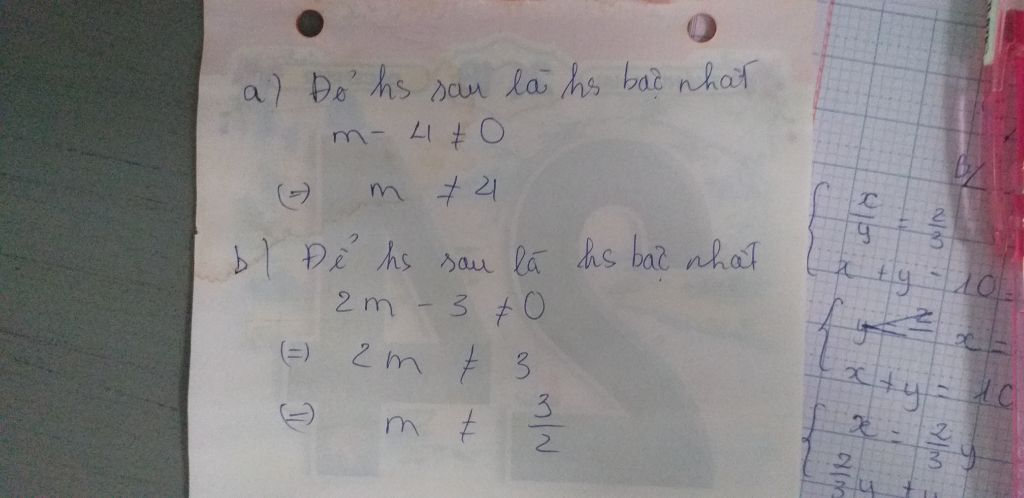 a) Để hs sau là hs bậc nhất
m - 4 ≠ 0
(=) m ≠ 4
b) Để hs sau là hs bậc nhất
2m - 3 ≠ 0
(=) 2m ≠ 3
(=) m ≠ 3/2
b/
{ x/y = 2/3
x + y - 10 =
x =
x + y = 10
{ x = 2/3 y
2/3 y +
24